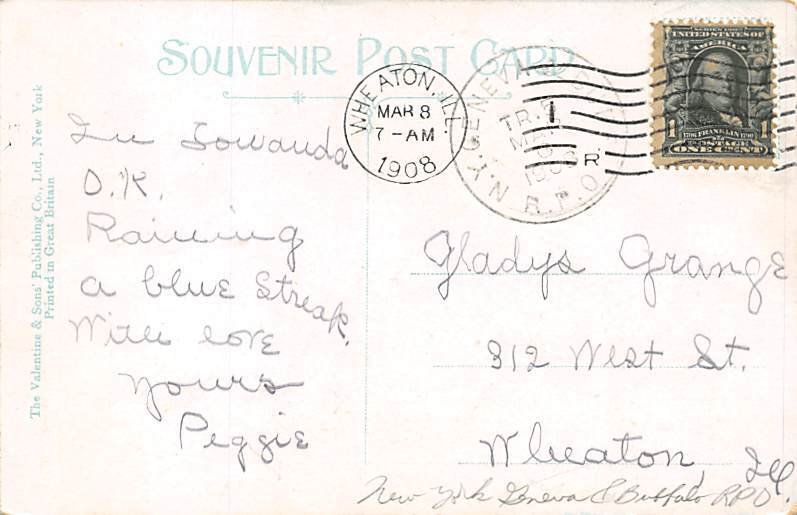 SOUVENIR POST CARD
WHEATON, ILL.
MAR 8
7-AM
1908
N.Y. GENEVA
TR. 5
R.P.O.
1
R
SERIES 1902
UNITED STATES OF
AMERICA
1 1706 FRANKLIN 1790 1
POSTAGE
ONE CENT
The Valentine & Sons' Publishing Co., Ltd., New York
Printed in Great Britain
In Towanda
O.K.
Raining
a blue streak.
With love
yours
Peggie
Gladys Grange
312 West St.
Wheaton, Ill.
New York Geneva & Buffalo RPO